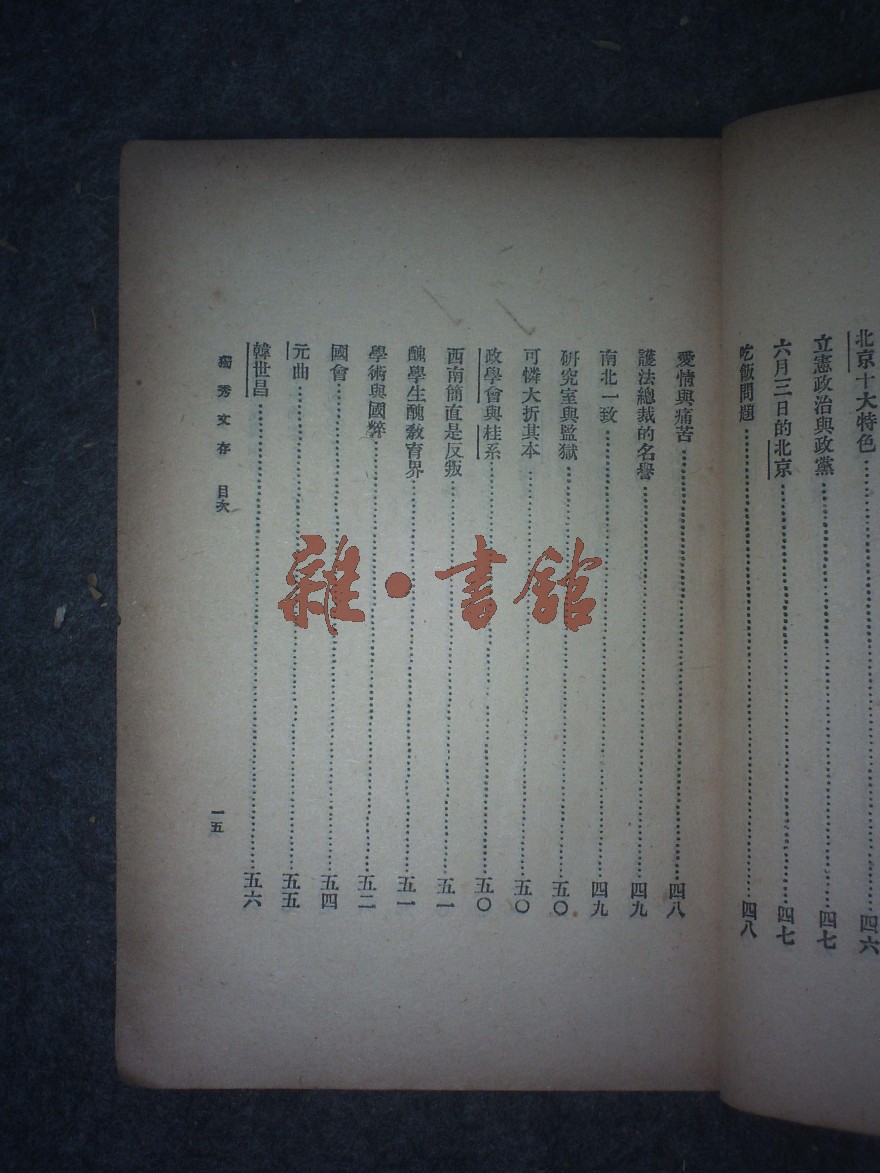 北京十大特色……四六
立憲政治與政黨……四七
六月三日的北京……四七
吃飯問題……四八
愛情與痛苦……四八
護法總裁的名譽……四九
南北一致……四九
研究室與監獄……五〇
可憐大折其本……五〇
政學會與桂系……五〇
西南簡直是反叛……五一
醜學生醜教育界……五一
學術與國粹……五二
國會……五四
元曲……五五
韓世昌……五六
獨秀文存 目次
一五
雜·書館